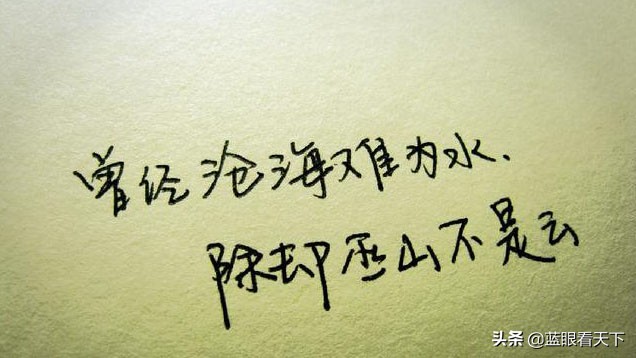 曾经沧海难为水.
除却巫山不是云
头条 @蓝眼看天下